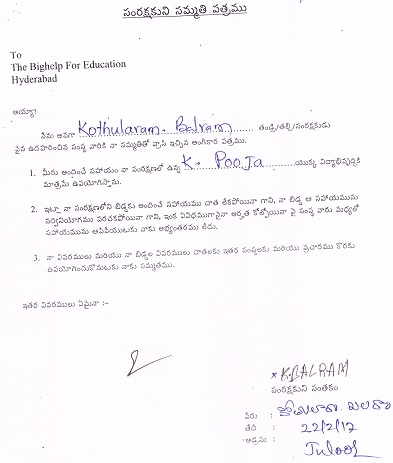 సంరక్షకుని సమ్మతి పత్రము
To
The Bighelp For Education
Hyderabad
అయ్యా!
నేను అనగా Kothularam. Balram తండ్రి/తల్లి/సంరక్షకుడు
పైన ఉదహరించిన సంస్థ వారికి నా సమ్మతితో వ్రాసి ఇచ్చిన అంగీకార పత్రము.
1. మీరు అందించే సహాయం నా సంరక్షణలో ఉన్న K. Pooja యొక్క విద్యాభివృద్ధికి
మాత్రమే ఉపయోగిస్తాను.
2. ఇట్లా నా సంరక్షణలోని బిడ్డకు అందించే సహాయము దాత లేకపోయినా గాని, నా బిడ్డ ఆ సహాయమును
సద్వినియోగము పరచకపోయినా గాని, ఇంక ఏవిధముగానైనా అర్హత కోల్పోయినా పై సంస్థ వారు మధ్యలో
సహాయమును ఆపివేయుటకు నాకు అభ్యంతరము లేదు.
3. నా వివరములు మరియు నా బిడ్డల వివరములు దాతలకు ఇతర సంస్థలకు మరియు ప్రచారము కొరకు
ఉపయోగించుకొనుటకు నాకు సమ్మతము.
ఇతర వివరములు ఏమైనా :-
x K. BALRAM
సంరక్షకుని సంతకం
పేరు :
తేది : 22/2/12
అడ్రసు : Juloor